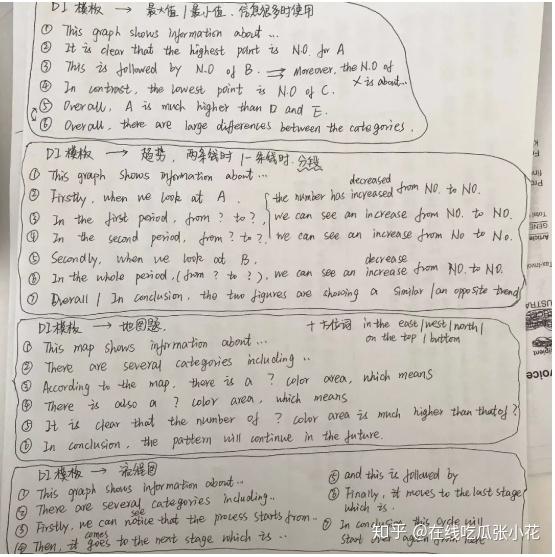 DI 模板 → 最大值 / 最小值. 信息很多时使用
① This graph shows information about ...
② It is clear that the highest point is N.O. for A
③ This is followed by N.O of B. ⇒ Moreover, the N.O of X is about...
④ In contrast, the lowest point is N.O of C.
⑤ Overall, A is much higher than D and E.
⑥ Overall, there are large differences between the categories.
DI 模板 → 趋势, 两条线时 / 一条线时. 分段
① This graph shows information about ...
② Firstly, when we look at A. the number has increased from NO. to NO.
decreased
③ In the first period, from ? to ?, we can see an increase from NO. to NO.
④ In the second period, from ? to ?, we can see an increase from No to No.
⑤ Secondly, when we look at B.
decrease
⑥ In the whole period, (from ? to ?), we can see an increase from NO. to NO.
⑦ Overall / In conclusion, the two figures are showing a similar / an opposite trend
DI 模板 → 地图题.
+ 方位词 in the east/west/north/
on the top / buttom
① This map shows information about ...
② There are several categories including ..
③ According to the map, there is a ? color area, which means
④ There is also a ? color area, which means
⑤ It is clear that the number of ? color area is much higher than that of ?
⑥ In conclusion, the pattern will continue in the future.
DI 模板 → 流程图
① This graph shows information about ..
② There are several categories including..
③ Firstly, we can notice that the process starts from ..
see
④ Then, it goes to the next stage which is ..
comes
⑤ and this is followed by
⑥ Finally, it moves to the last stage
which is ..
⑦ In conclusion, this cycle will
start over again from here
知乎 @在线吃瓜张小花